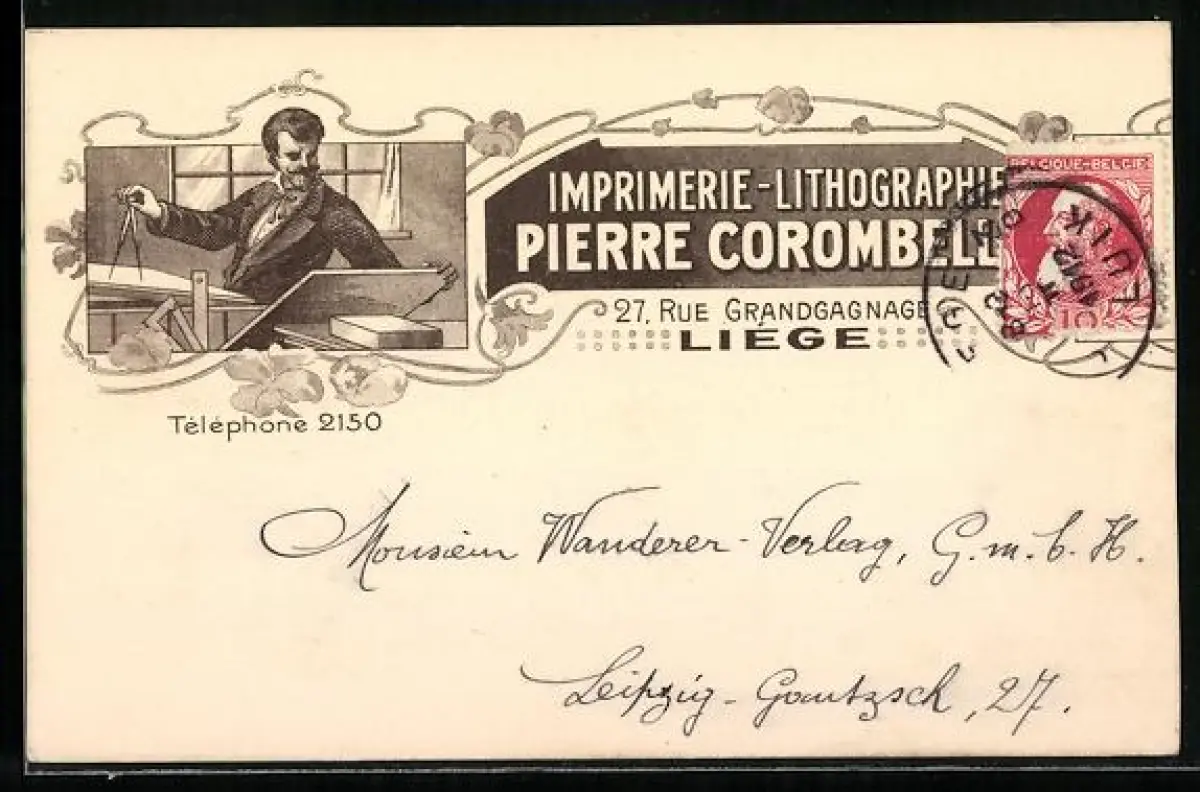 IMPRIMERIE-LITHOGRAPHIE
PIERRE COROMBELL
27, RUE GRANDGAGNAGE
LIÉGE
BELGIQUE-BELGIË
10
LUIK
Téléphone 2150
Monsieur Wanderer-Verlag, G.m.b.H.
Leipzig-Gautzsch, 27.